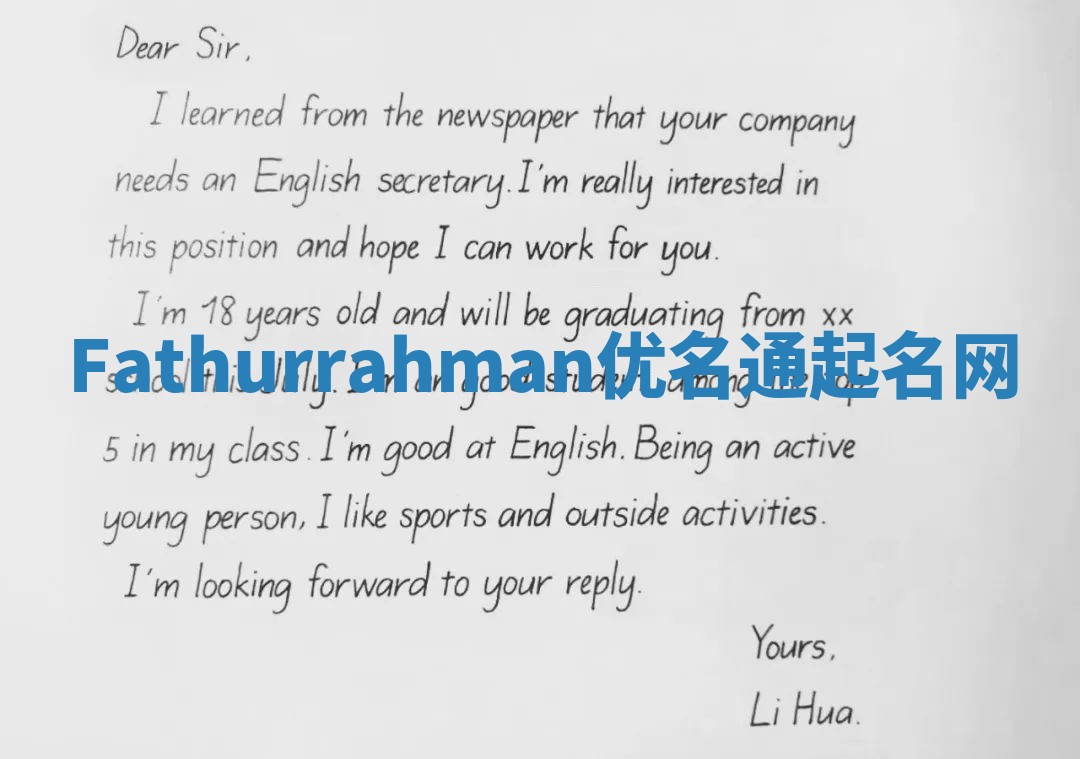 Dear Sir,
I learned from the newspaper that your company
needs an English secretary. I'm really interested in
this position and hope I can work for you.
I'm 18 years old and will be graduating from xx
Fathurrahman优名通起名网
school this July. I'm a good student among the top
5 in my class. I'm good at English. Being an active
young person, I like sports and outside activities.
I'm looking forward to your reply.
Yours,
Li Hua.